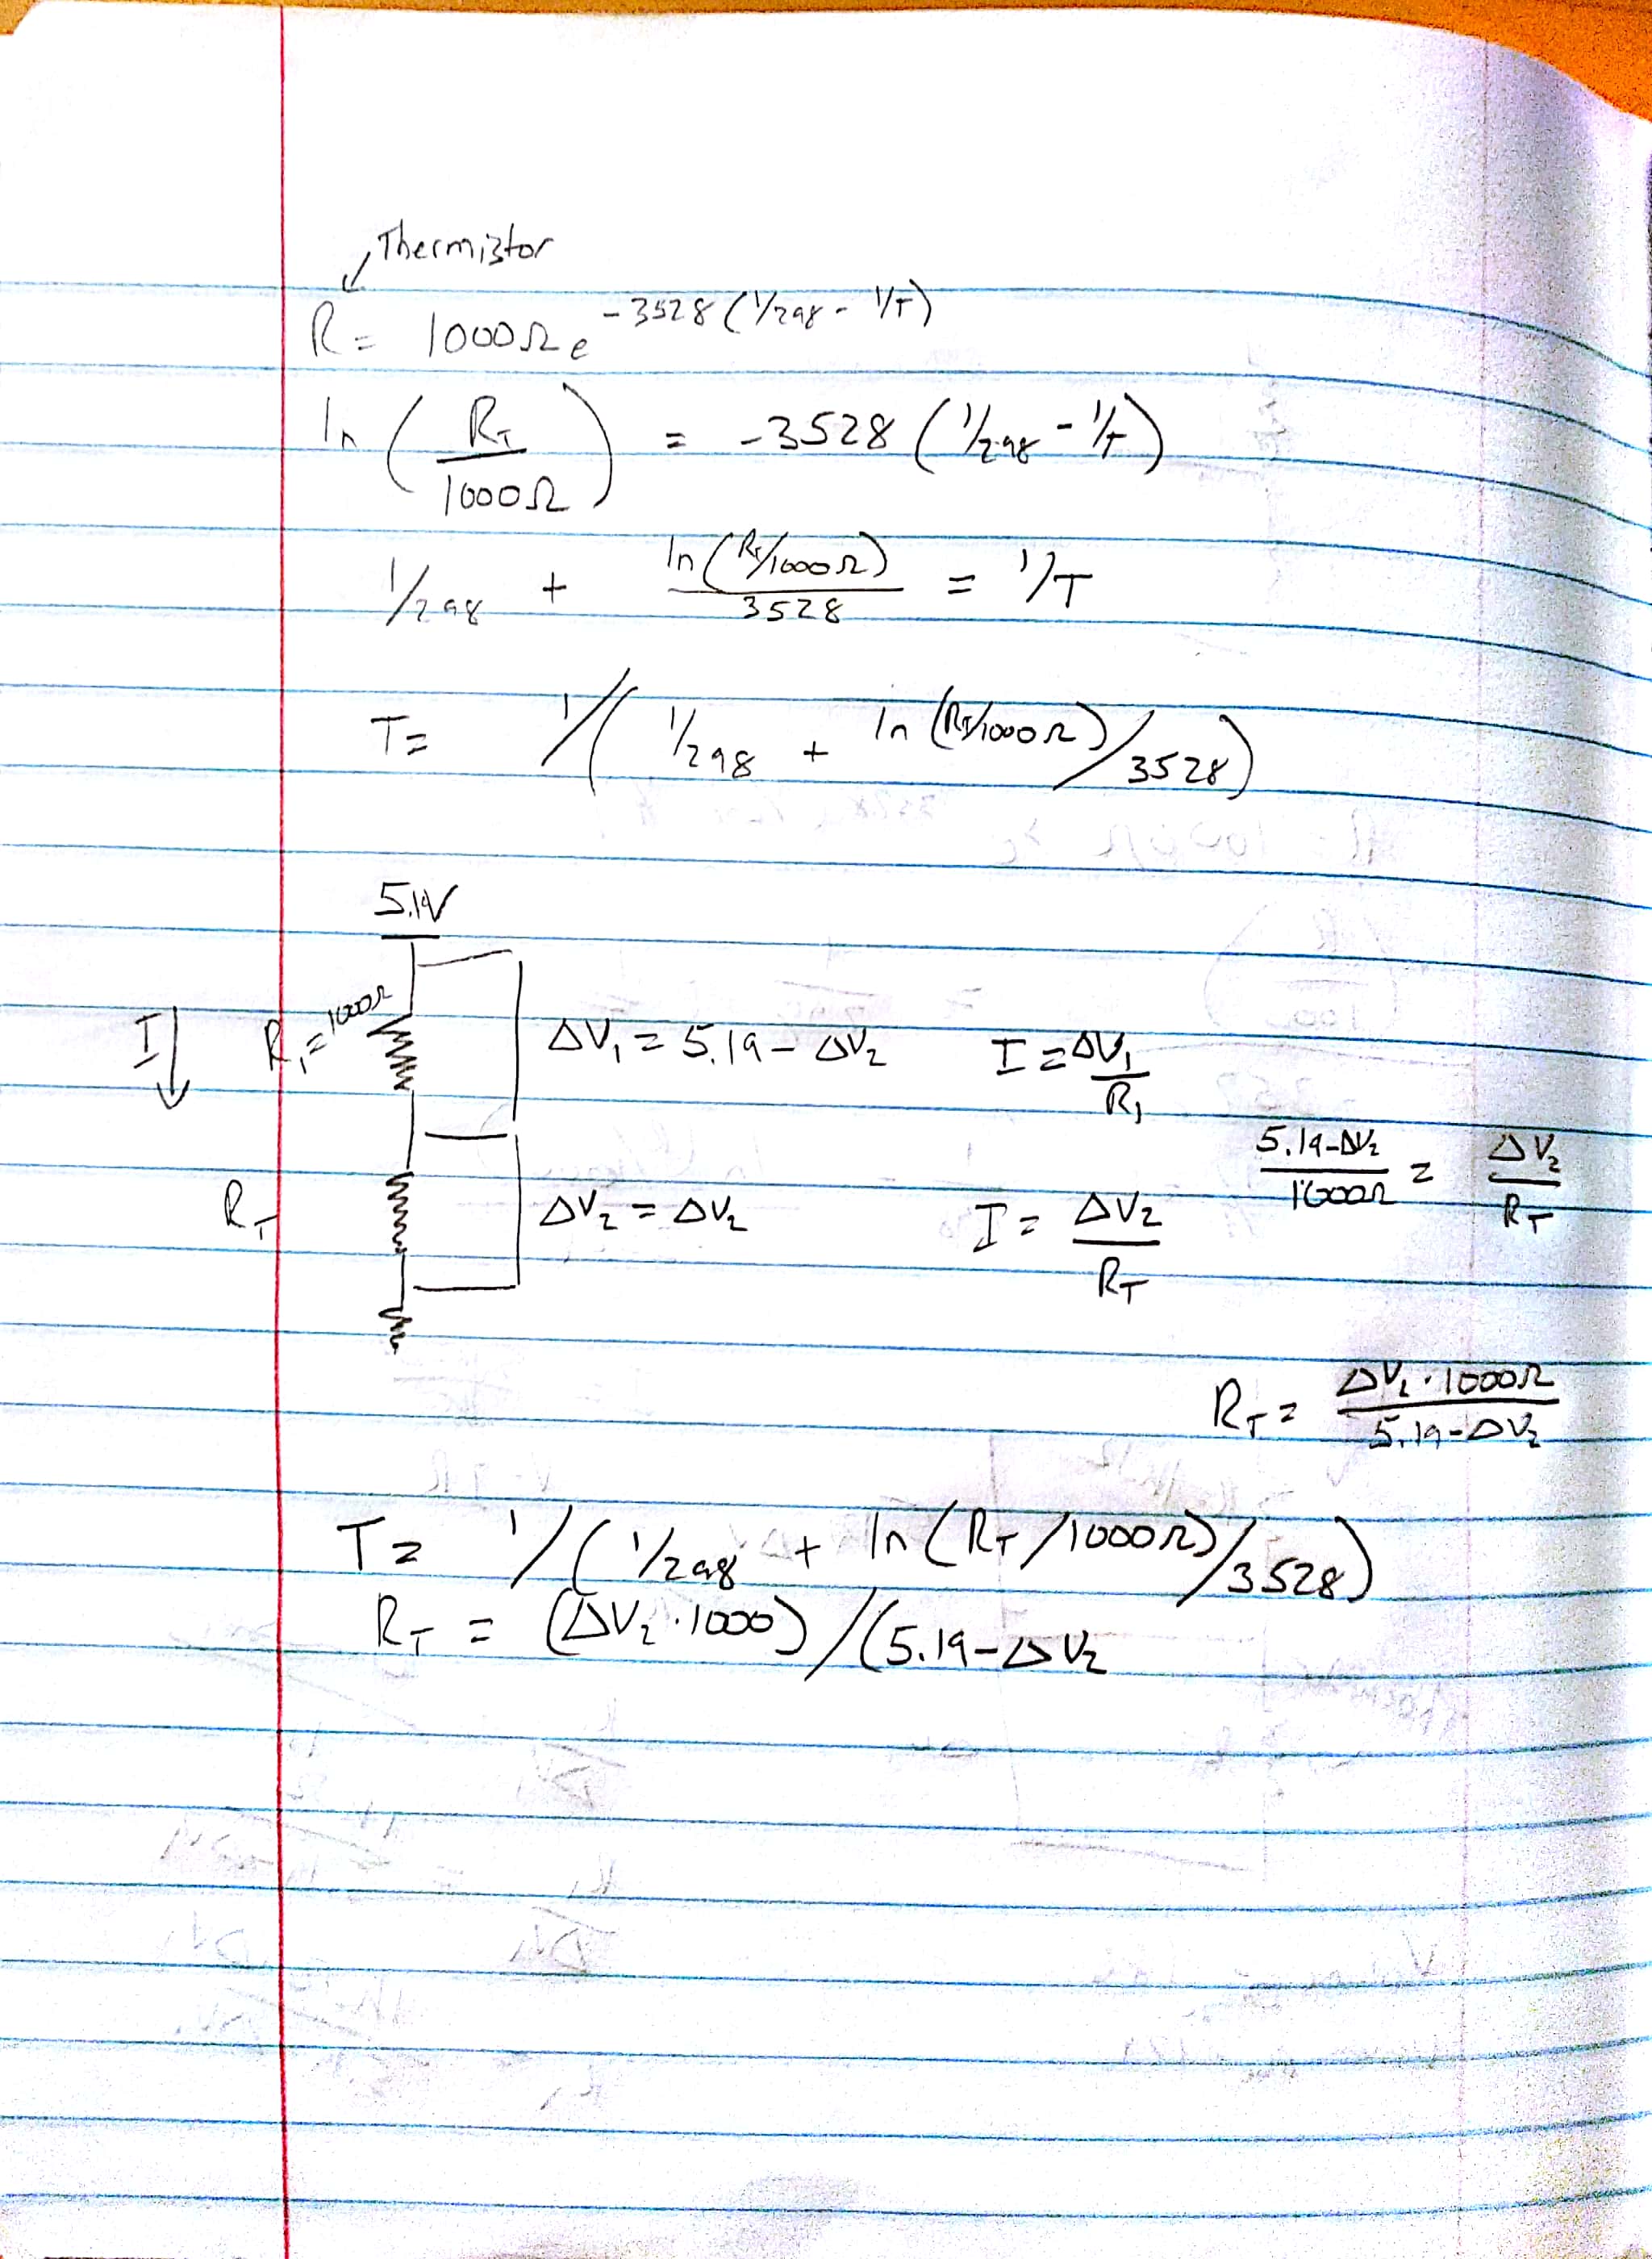 Thermistor
R = 1000Ω e^-3528 (1/298 - 1/T)
ln (R_T / 1000Ω) = -3528 (1/298 - 1/T)
1/298 + ln(R_T/1000Ω) / 3528 = 1/T
T = 1/(1/298 + ln(R_T/1000Ω)/3528)
5.19V
I R₁=1000Ω ΔV₁ = 5.19 - ΔV₂ I = ΔV₁/R₁
(5.19-ΔV₂)/1000Ω = ΔV₂/R_T
R_T ΔV₂ = ΔV₂ I = ΔV₂/R_T
R_T = (ΔV₂ · 1000Ω)/(5.19-ΔV₂)
T = 1/(1/298 + ln(R_T/1000Ω)/3528)
R_T = (ΔV₂ · 1000)/(5.19-ΔV₂